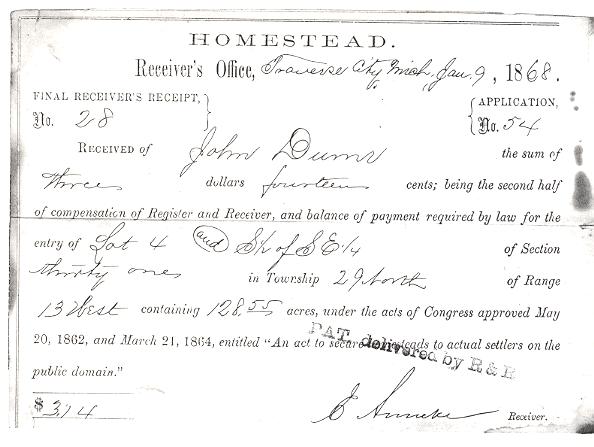 HOMESTEAD.
Receiver's Office, Traverse City Mich, Jan. 9, 1868.
FINAL RECEIVER'S RECEIPT, No. 28
APPLICATION, No. 54
RECEIVED of John Dunn the sum of
three dollars fourteen cents; being the second half
of compensation of Register and Receiver, and balance of payment required by law for the
entry of Lot 4 and S½ of SE¼ of Section
thirty one in Township 29 North of Range
13 West containing 128.55 acres, under the acts of Congress approved May
20, 1862, and March 21, 1864, entitled "An act to secure homesteads to actual settlers on the
public domain."
PAT. delivered by R & R
$ 3.14
E Anneke Receiver.